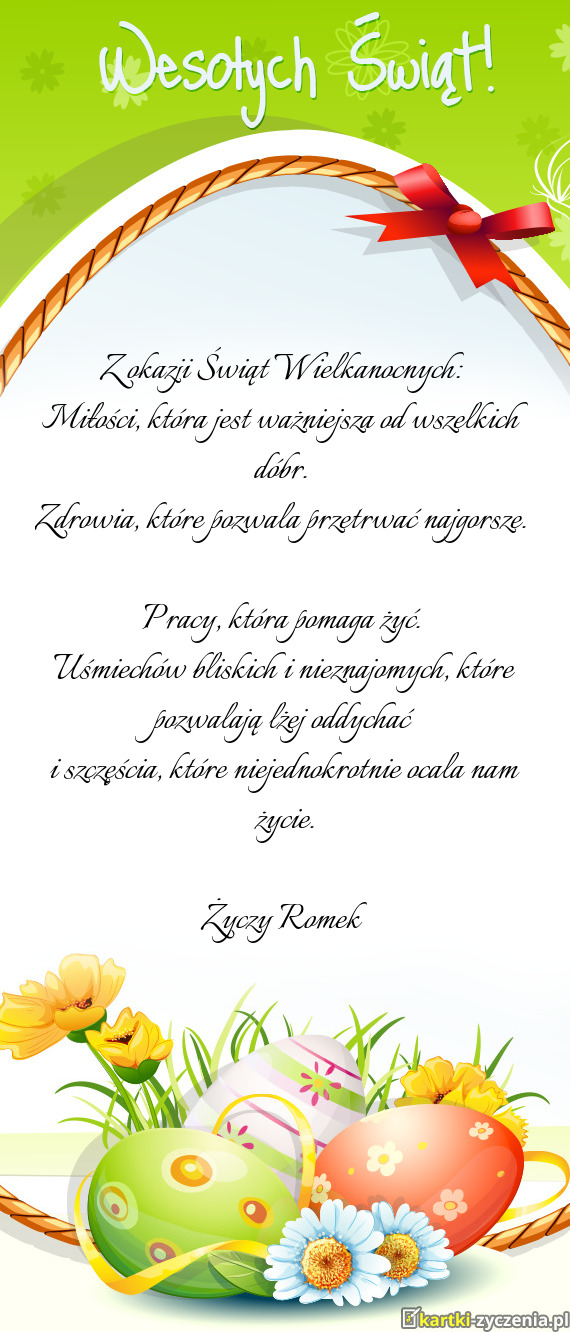 Wesołych Świąt!
Z okazji Świąt Wielkanocnych:
Miłości, która jest ważniejsza od wszelkich
dóbr.
Zdrowia, które pozwala przetrwać najgorsze.
Pracy, która pomaga żyć.
Uśmiechów bliskich i nieznajomych, które
pozwalają lżej oddychać
i szczęścia, które niejednokrotnie ocala nam
życie.
Życzy Romek
kartki-zyczenia.pl